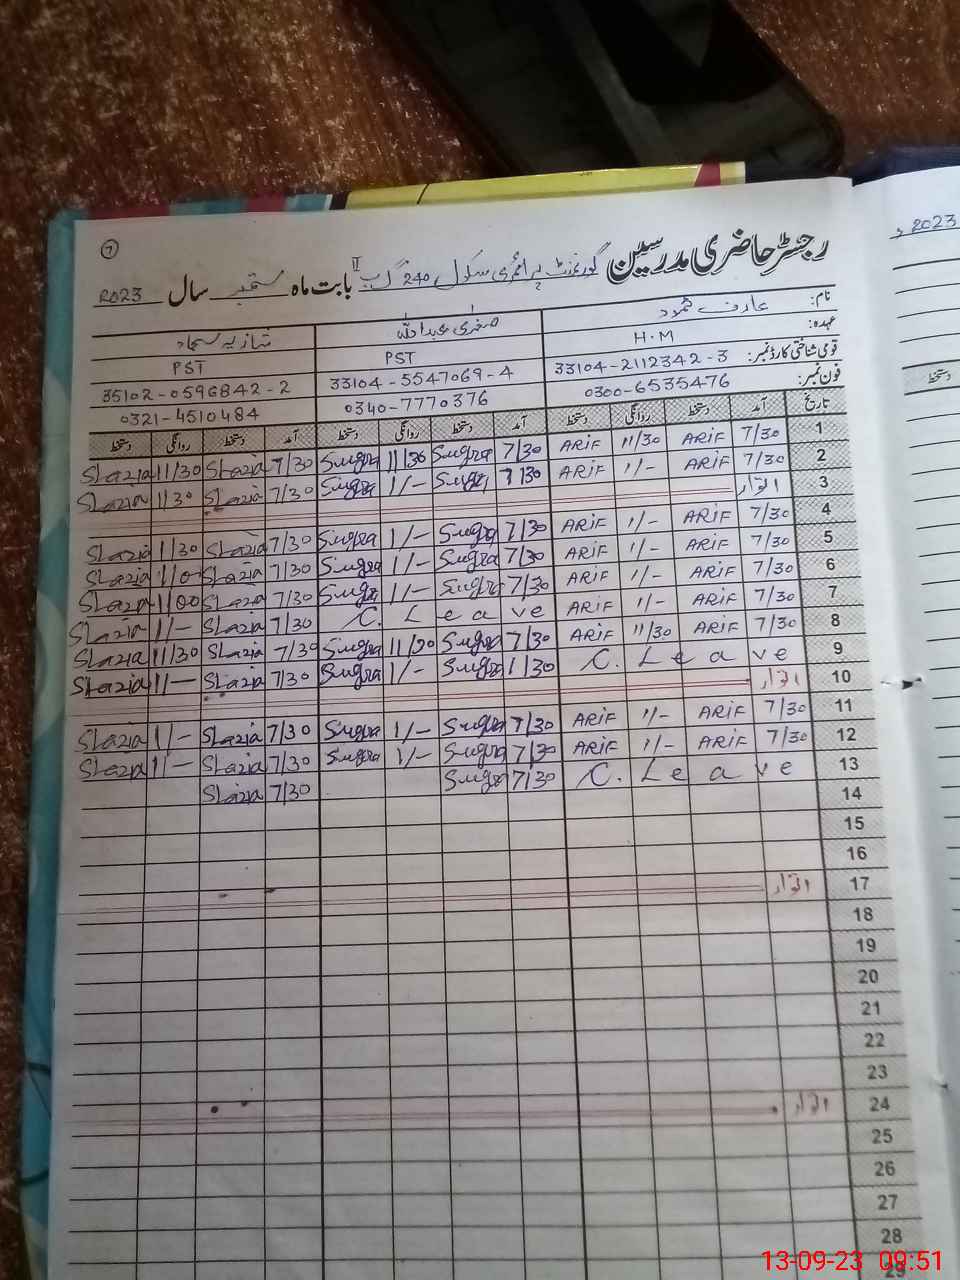 7
رجسٹر حاضری مدرسین گورنمنٹ پرائمری سکول 240 گ ب II بابت ماہ ستمبر سال 2023
نام: عارف محمود صغریٰ عبداللہ شازیہ
عہدہ: H.M PST PST
قومی شناختی کارڈ نمبر: 33104-2112342-3 33104-5547069-4 35102-0596842-2
فون نمبر: 0300-6535476 0340-7770376 0321-4510484
تاریخ آمد دستخط روانگی دستخط آمد دستخط روانگی دستخط آمد دستخط روانگی دستخط
1 7/30 ARIF 11/30 ARIF 7/30 Sugra 11/30 Sugra 7/30 Shazia 11/30 Shazia
2 7/30 ARIF 1/- ARIF 7/30 Sugra 1/- Sugra 7/30 Shazia 11/30 Shazia
3 اتوار
4 7/30 ARIF 1/- ARIF 7/30 Sugra 1/- Sugra 7/30 Shazia 1/30 Shazia
5 7/30 ARIF 1/- ARIF 7/30 Sugra 1/- Sugra 7/30 Shazia Shazia
6 7/30 ARIF 1/- ARIF 7/30 Sugra 1/- Sugra 7/30 Shazia Shazia
7 7/30 ARIF 1/- ARIF C. Leave 7/30 Shazia 1/- Shazia
8 7/30 ARIF 11/30 ARIF 7/30 Sugra 11/30 Sugra 7/30 Shazia 11/30 Shazia
9 C. Leave Sugra 1/- Sugra 7/30 Shazia 1/- Shazia
10 اتوار
11 7/30 ARIF 1/- ARIF 7/30 Sugra 1/- Sugra 7/30 Shazia 1/- Shazia
12 7/30 ARIF 1/- ARIF 7/30 Sugra 1/- Sugra 7/30 Shazia 1/- Shazia
13 C. Leave 7/30 Sugra 7/30 Shazia
14
15
16
17 اتوار
18
19
20
21
22
23
24 اتوار
25
26
27
28
29
2023
دستخط
13-09-23 09:51